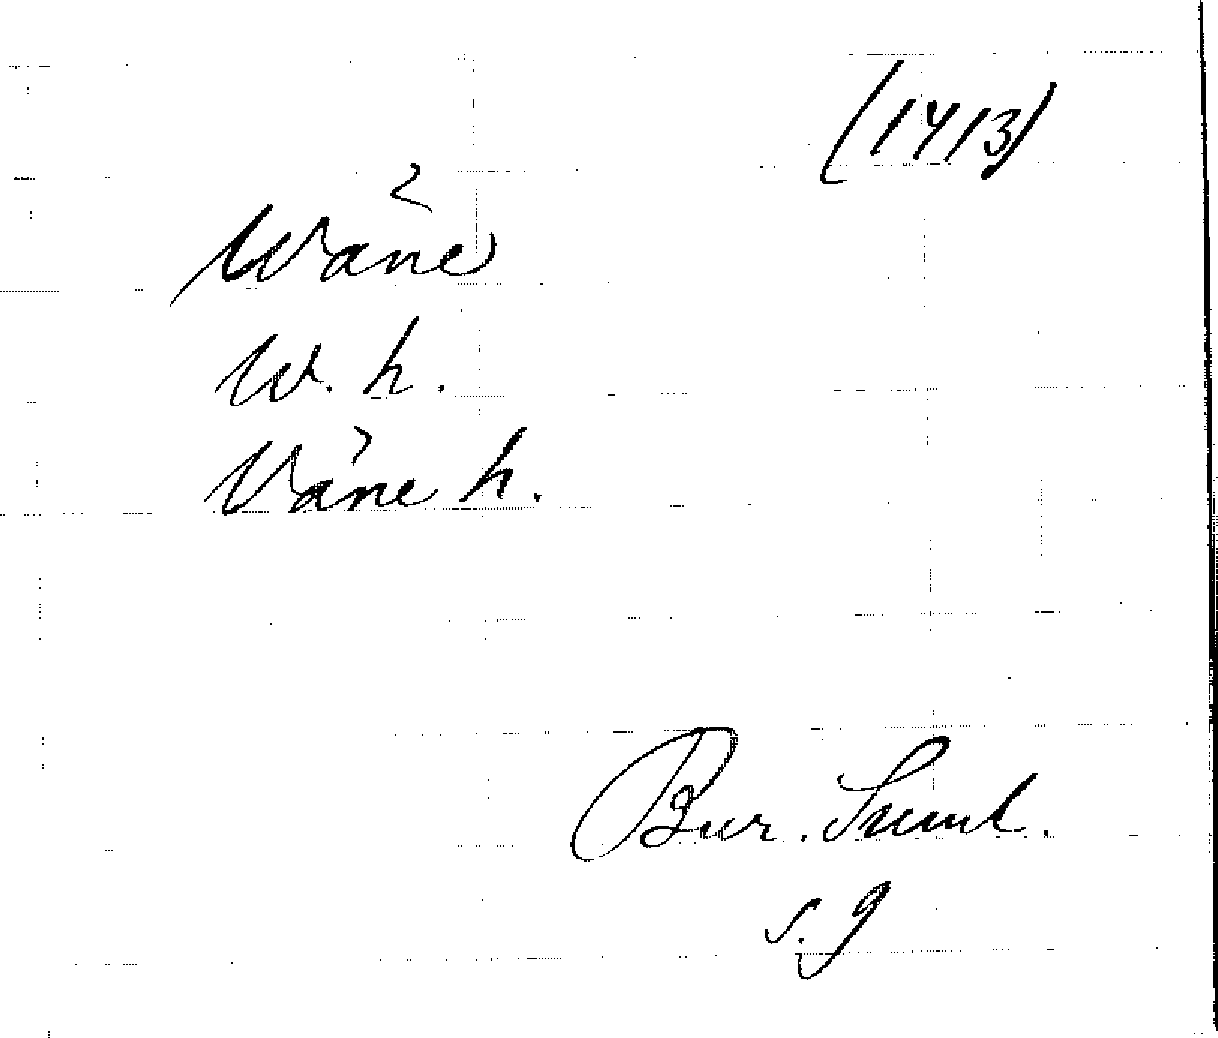 (1413)
Wäne
W. h.
Väne h.
Bur. Suml.
s. 9